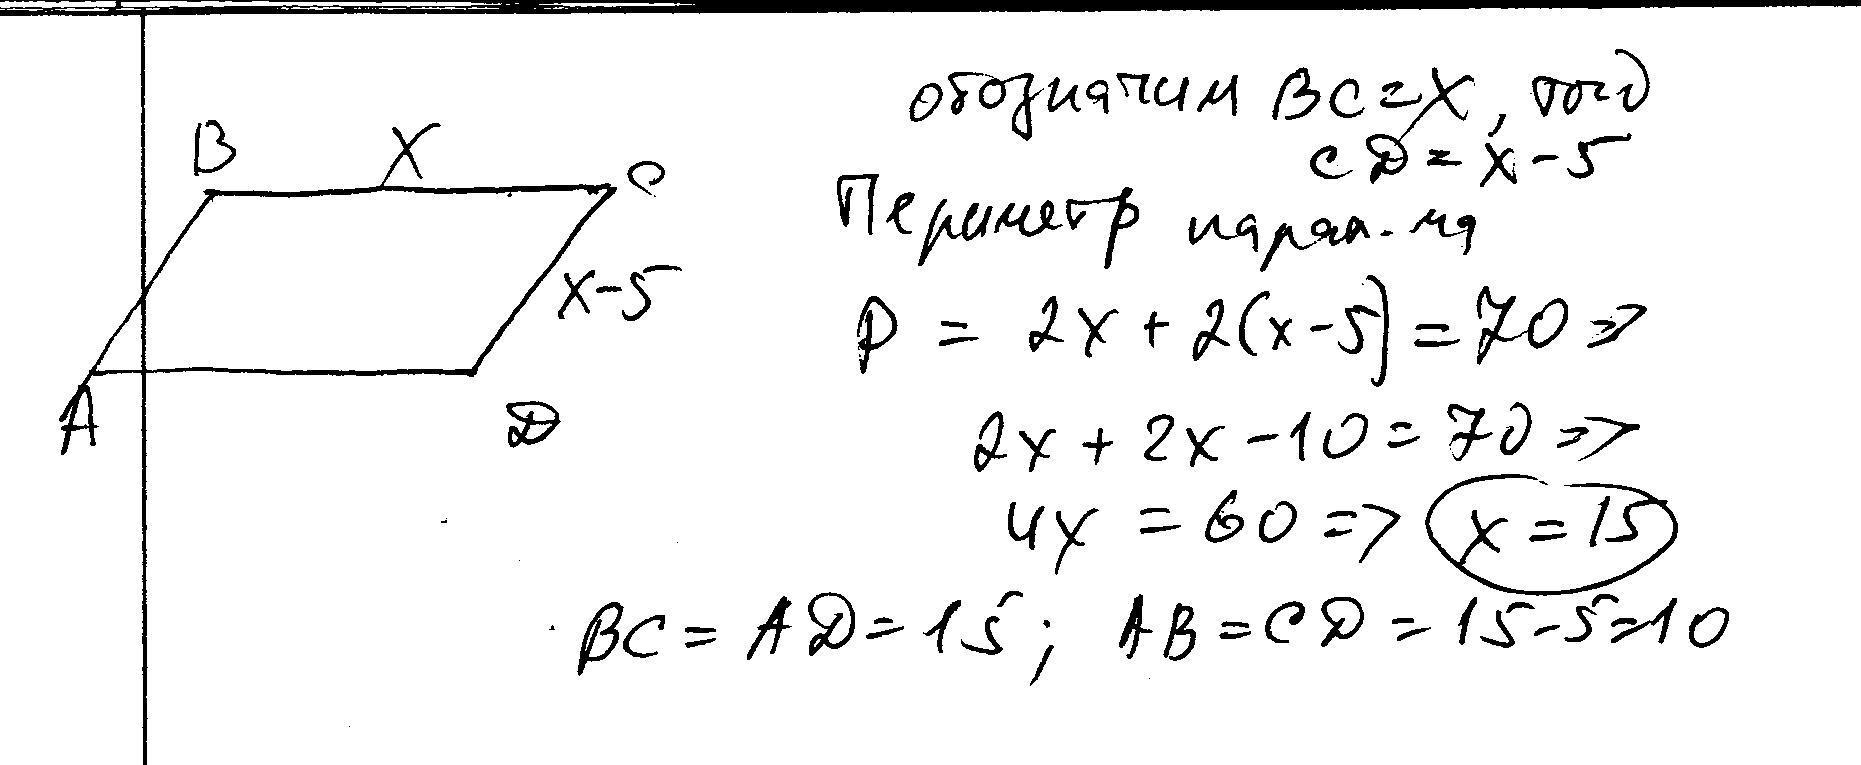 B X C
X-5
A D
обозначим BC=X, тогд
CD=X-5
Периметр парал-ма
P = 2X + 2(x-5) = 70 =>
2X + 2X - 10 = 70 =>
4X = 60 => X = 15
BC = AD = 15; AB = CD = 15-5=10